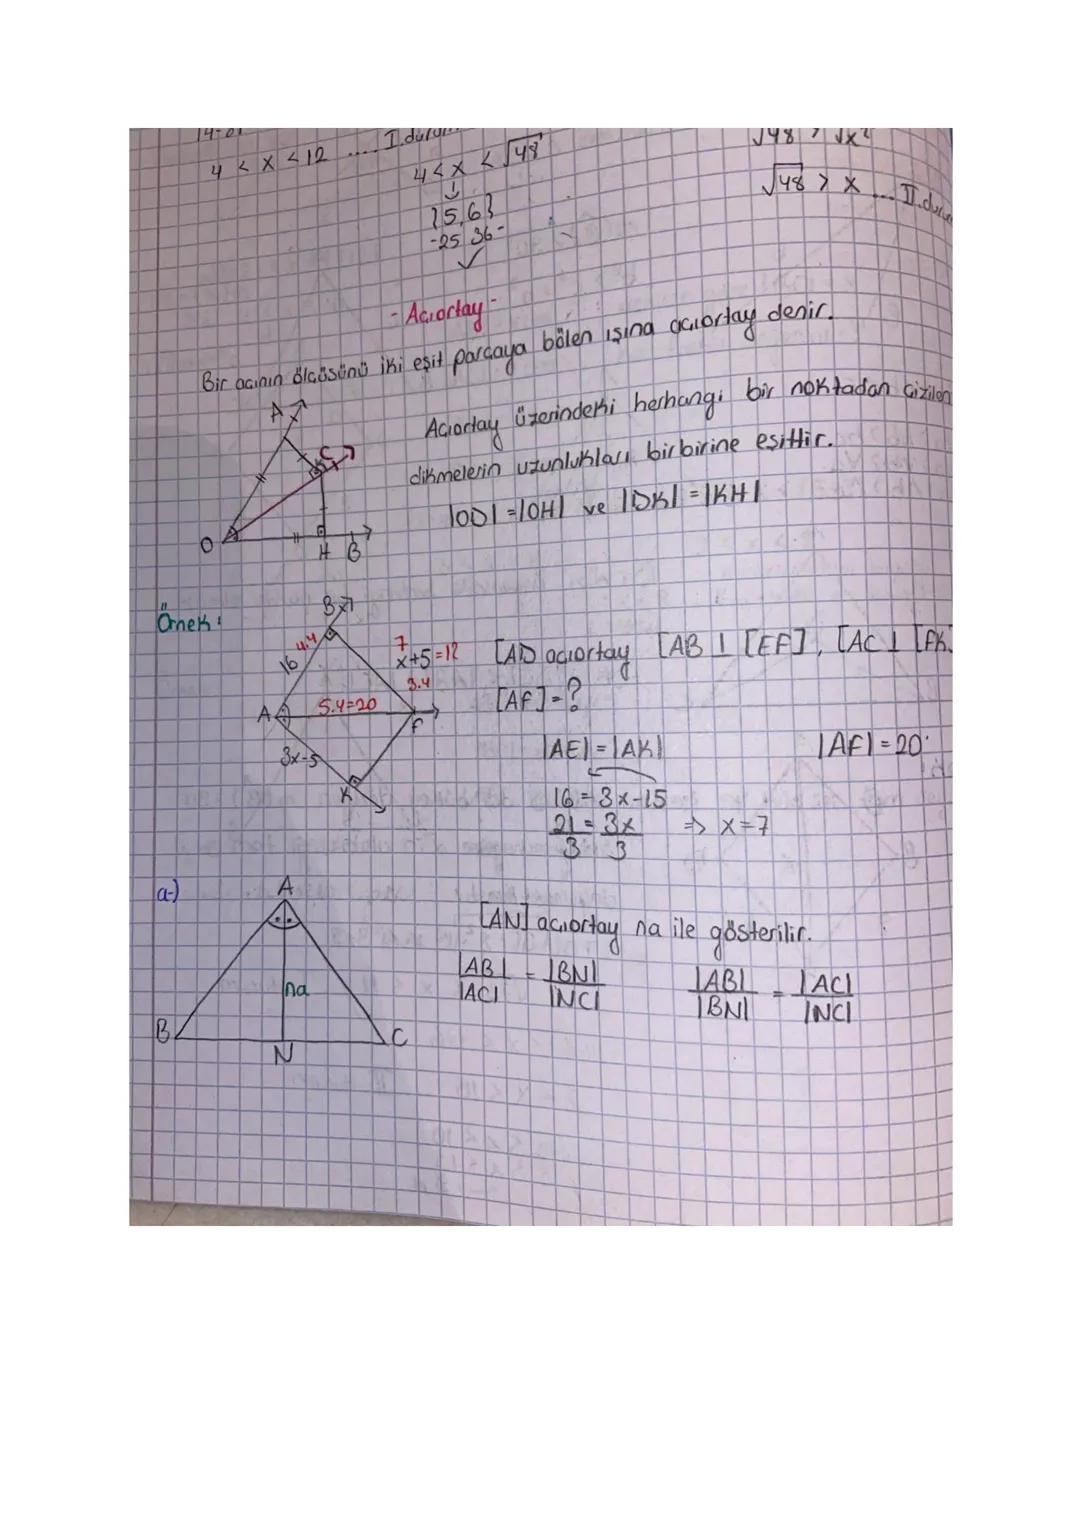 4 < x < 12 .... I.durum
4 < x < √48
↓
{5,6}
-25 36-
✓
√48 > √x²
√48 > x ... II.durum
- Açıortay -
Bir açının ölçüsünü iki eşit parçaya bölen ışına açıortay denir.
A
C
O
H B
Açıortay üzerindeki herhangi bir noktadan çizilen
dikmelerin uzunlukları birbirine eşittir.
|OD| = |OH| ve |DK| = |KH|
Örnek:
B
16 4.4
7
x+5=12
3.4
A
5.4=20
F
3x-5
K
[AD açıortay [AB ⊥ [EF], [AC ⊥ [FK]
[AF]=?
|AE| = |AK|
|AF| = 20
16 = 3x-15
21 = 3x ⇒ x=7
3 3
a-)
A
na
B
N
C
[AN] açıortay na ile gösterilir.
|AB| = |BN|
|AC| |NC|
|AB| = |AC|
|BN| |NC|